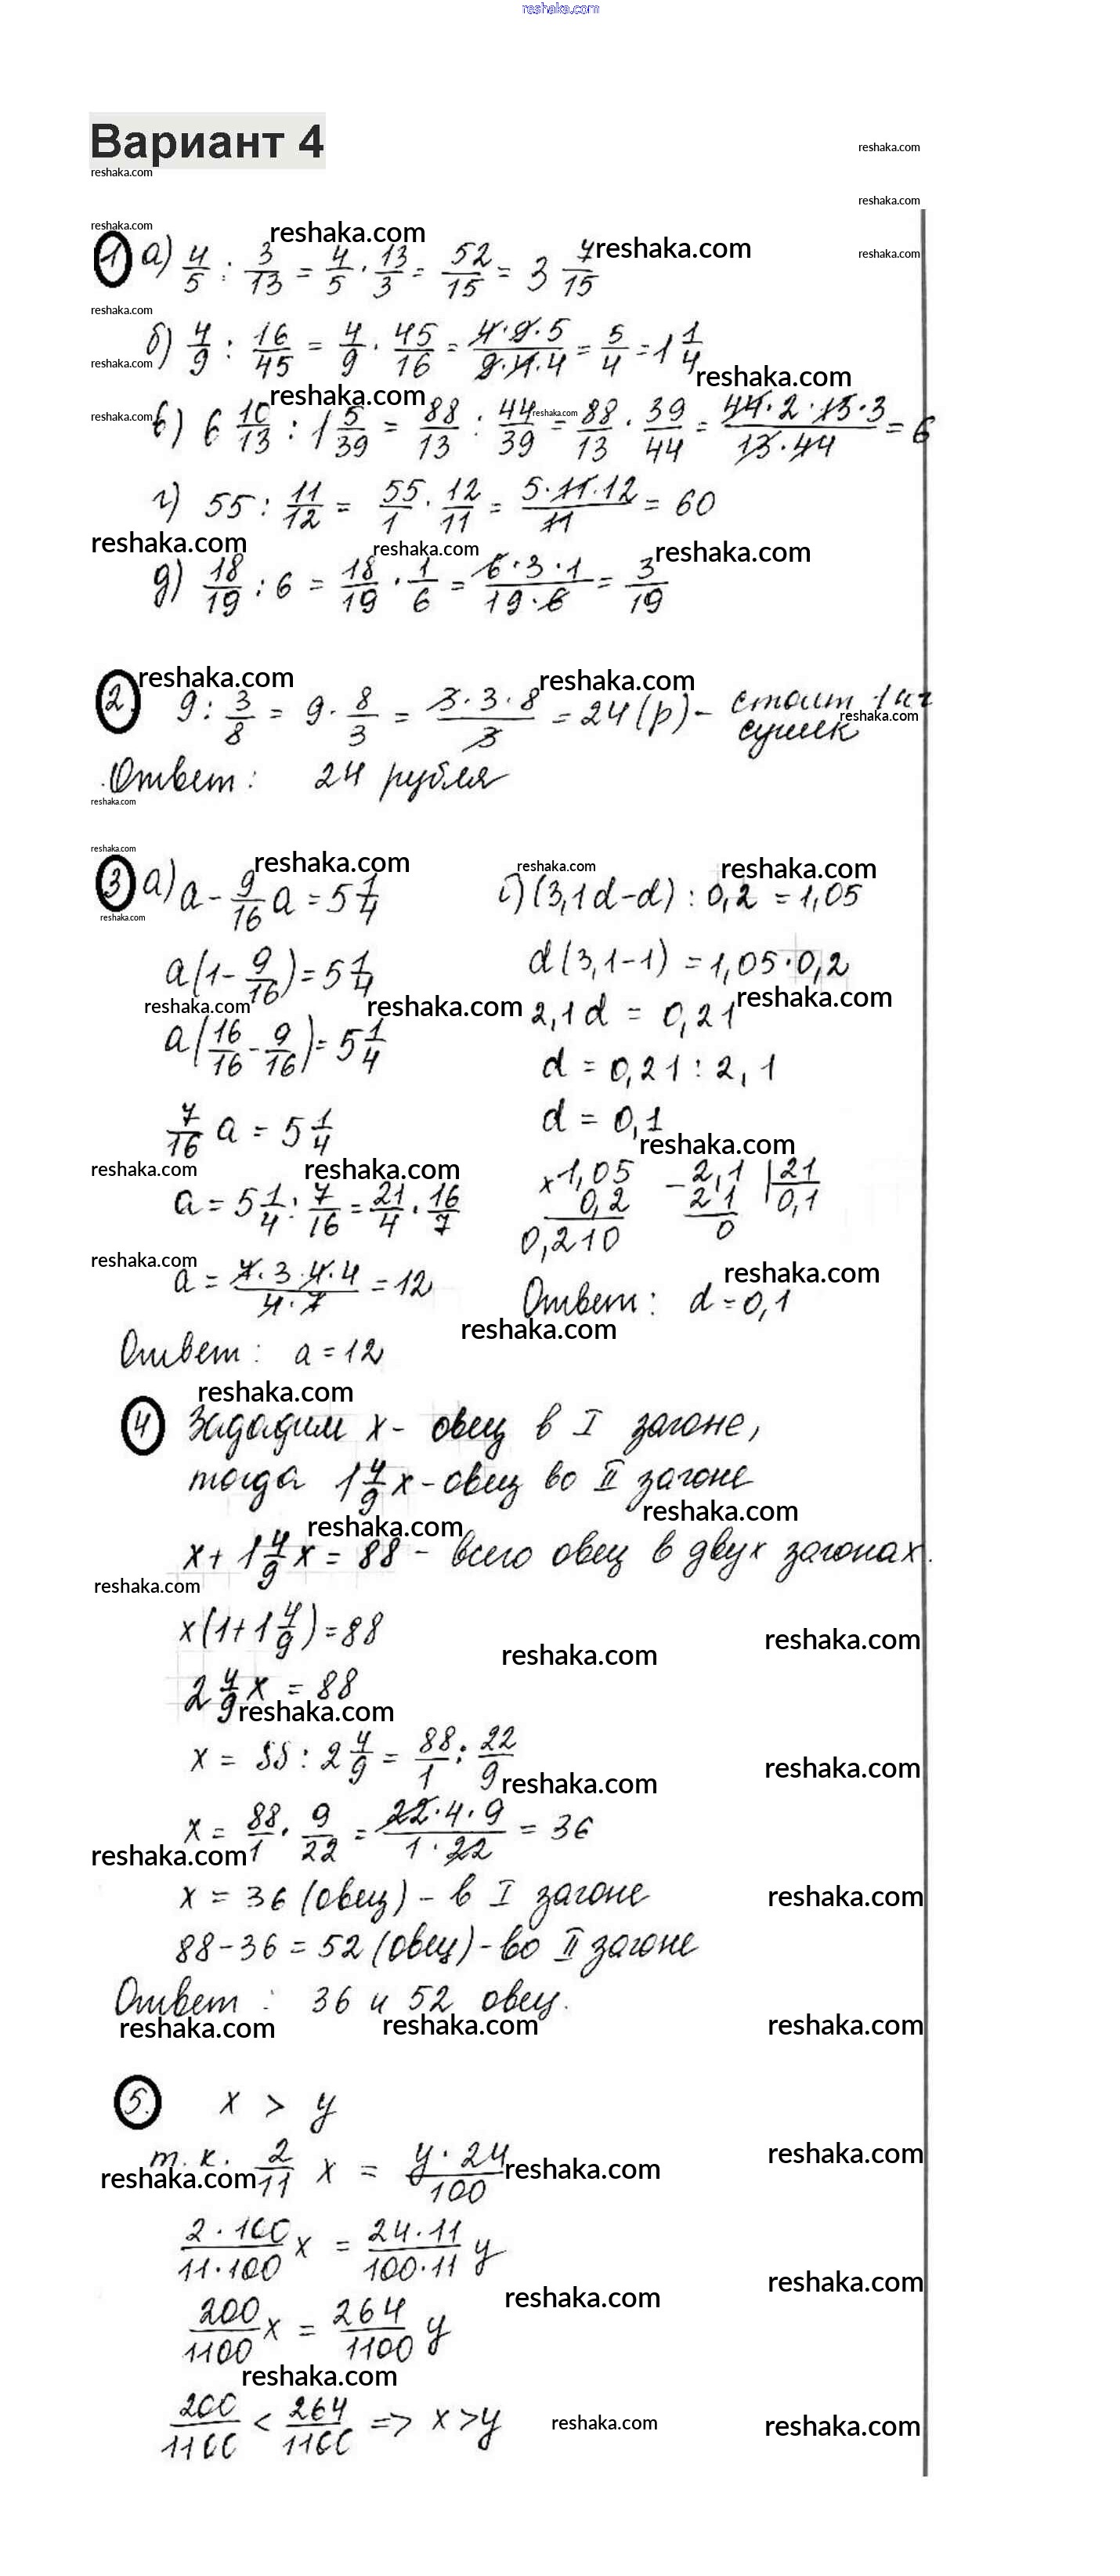 reshaka.com
Вариант 4
① а) 4/5 : 3/13 = 4/5 · 13/3 = 52/15 = 3 7/15
б) 4/9 : 16/45 = 4/9 · 45/16 = 4·9·5/9·4·4 = 5/4 = 1 1/4
в) 6 10/13 : 1 5/39 = 88/13 : 44/39 = 88/13 · 39/44 = 44·2·13·3/13·44 = 6
г) 55 : 11/12 = 55/1 · 12/11 = 5·11·12/11 = 60
д) 18/19 : 6 = 18/19 · 1/6 = 6·3·1/19·6 = 3/19
② 9 : 3/8 = 9 · 8/3 = 3·3·8/3 = 24 (р) – стоит 1 кг
сушек
Ответ: 24 рубля
③ а) a - 9/16 a = 5 1/4
a(1 - 9/16) = 5 1/4
a(16/16 - 9/16) = 5 1/4
7/16 a = 5 1/4
a = 5 1/4 : 7/16 = 21/4 · 16/7
a = 7·3·4·4/4·7 = 12
Ответ: a = 12
б) (3,1d-d) : 0,2 = 1,05
d(3,1-1) = 1,05·0,2
2,1d = 0,21
d = 0,21 : 2,1
d = 0,1
×1,05 -2,1 |21
0,2 21 0,1
0,210 0
Ответ: d = 0,1
④ Зададим x - овец в I загоне,
тогда 1 4/9 x - овец во II загоне
x + 1 4/9 x = 88 - всего овец в двух загонах.
x(1 + 1 4/9) = 88
2 4/9 x = 88
x = 88 : 2 4/9 = 88/1 : 22/9
x = 88/1 · 9/22 = 22·4·9/1·22 = 36
x = 36 (овец) - в I загоне
88 - 36 = 52 (овец) - во II загоне
Ответ: 36 и 52 овец.
⑤. x > y
т. к. 2/11 x = y·24/100
2·100/11·100 x = 24·11/100·11 y
200/1100 x = 264/1100 y
200/1100 < 264/1100 => x > y